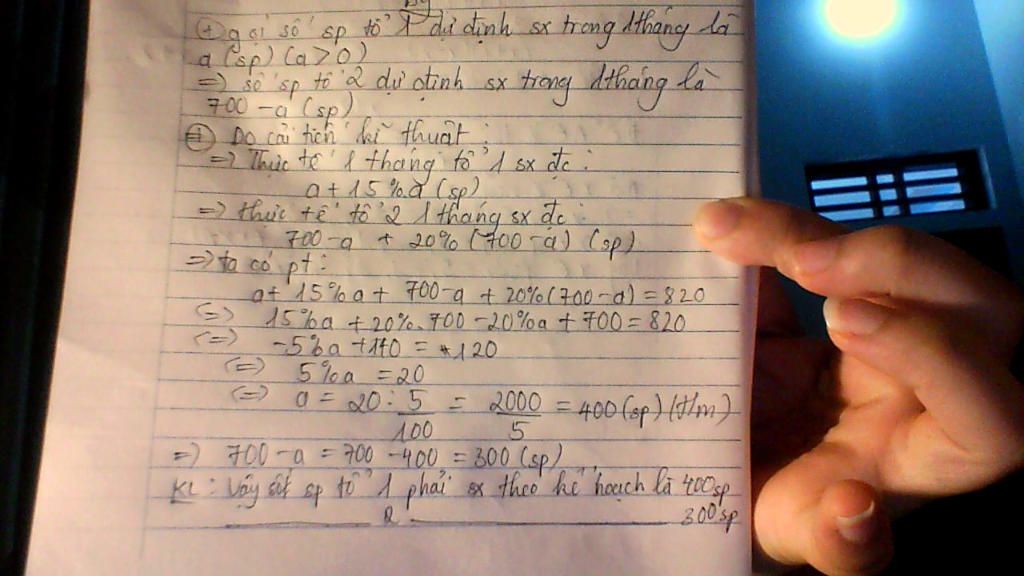 + gọi số sp tổ 1 dự định sx trong 1 tháng là
a (sp) (a > 0)
=> số sp tổ 2 dự định sx trong 1 tháng là
700 - a (sp)
+ Do cải tiến kĩ thuật :
=> Thực tế 1 tháng tổ 1 sx đc :
a + 15%a (sp)
=> thực tế tổ 2 1 tháng sx đc :
700 - a + 20% (700 - a) (sp)
=> ta có pt :
a + 15%a + 700 - a + 20%(700 - a) = 820
<=> 15%a + 20%.700 - 20%a + 700 = 820
<=> -5%a + 140 = 120
<=> 5%a = 20
<=> a = 20 : 5/100 = 2000/5 = 400 (sp) (t/m)
=> 700 - a = 700 - 400 = 300 (sp)
KL : Vậy số sp tổ 1 phải sx theo kế hoạch là 400sp
2 300sp